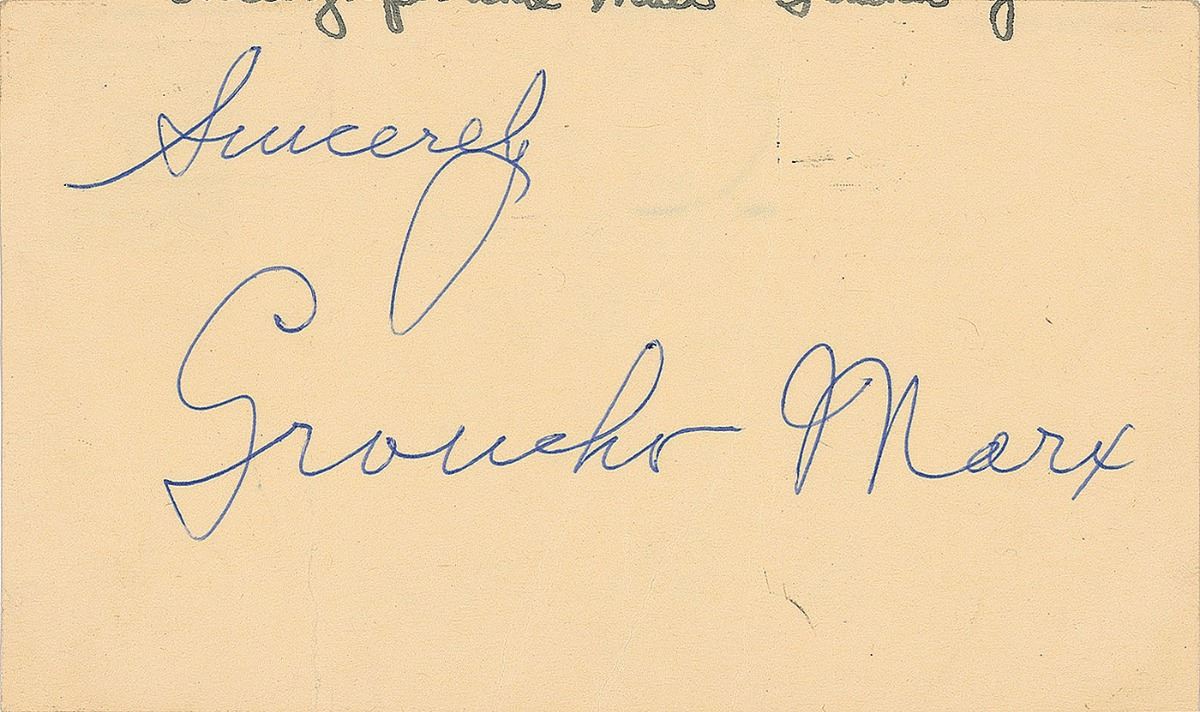 Sincerely
Groucho Marx